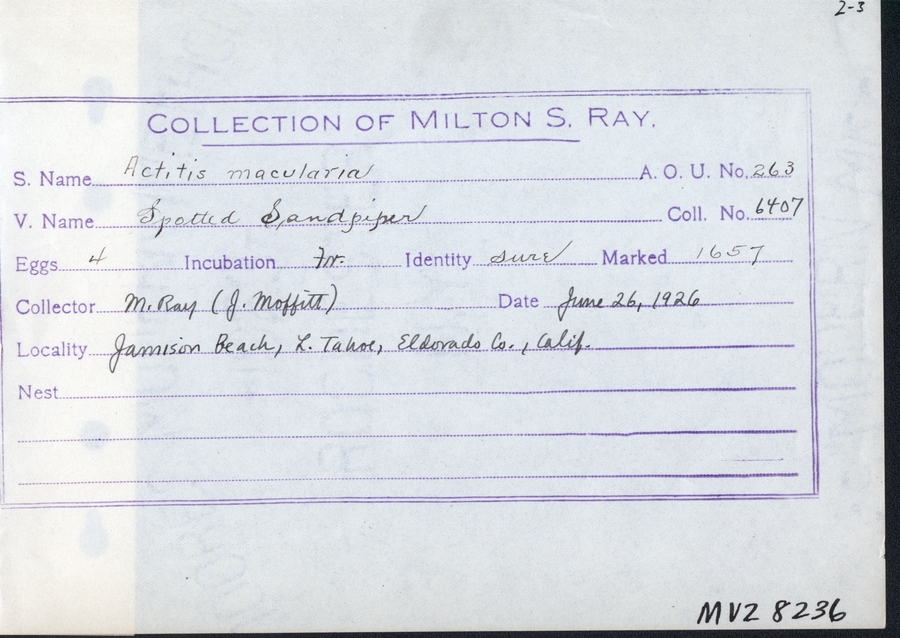 2-3
COLLECTION OF MILTON S. RAY.
S. Name Actitis macularia A. O. U. No. 263
V. Name Spotted Sandpiper Coll. No. 6407
Eggs 4 Incubation Fr. Identity sure Marked 1657
Collector M. Ray (J. Moffitt) Date June 26, 1926
Locality Jamison Beach, L. Tahoe, Eldorado Co., Calif.
Nest
MVZ 8236